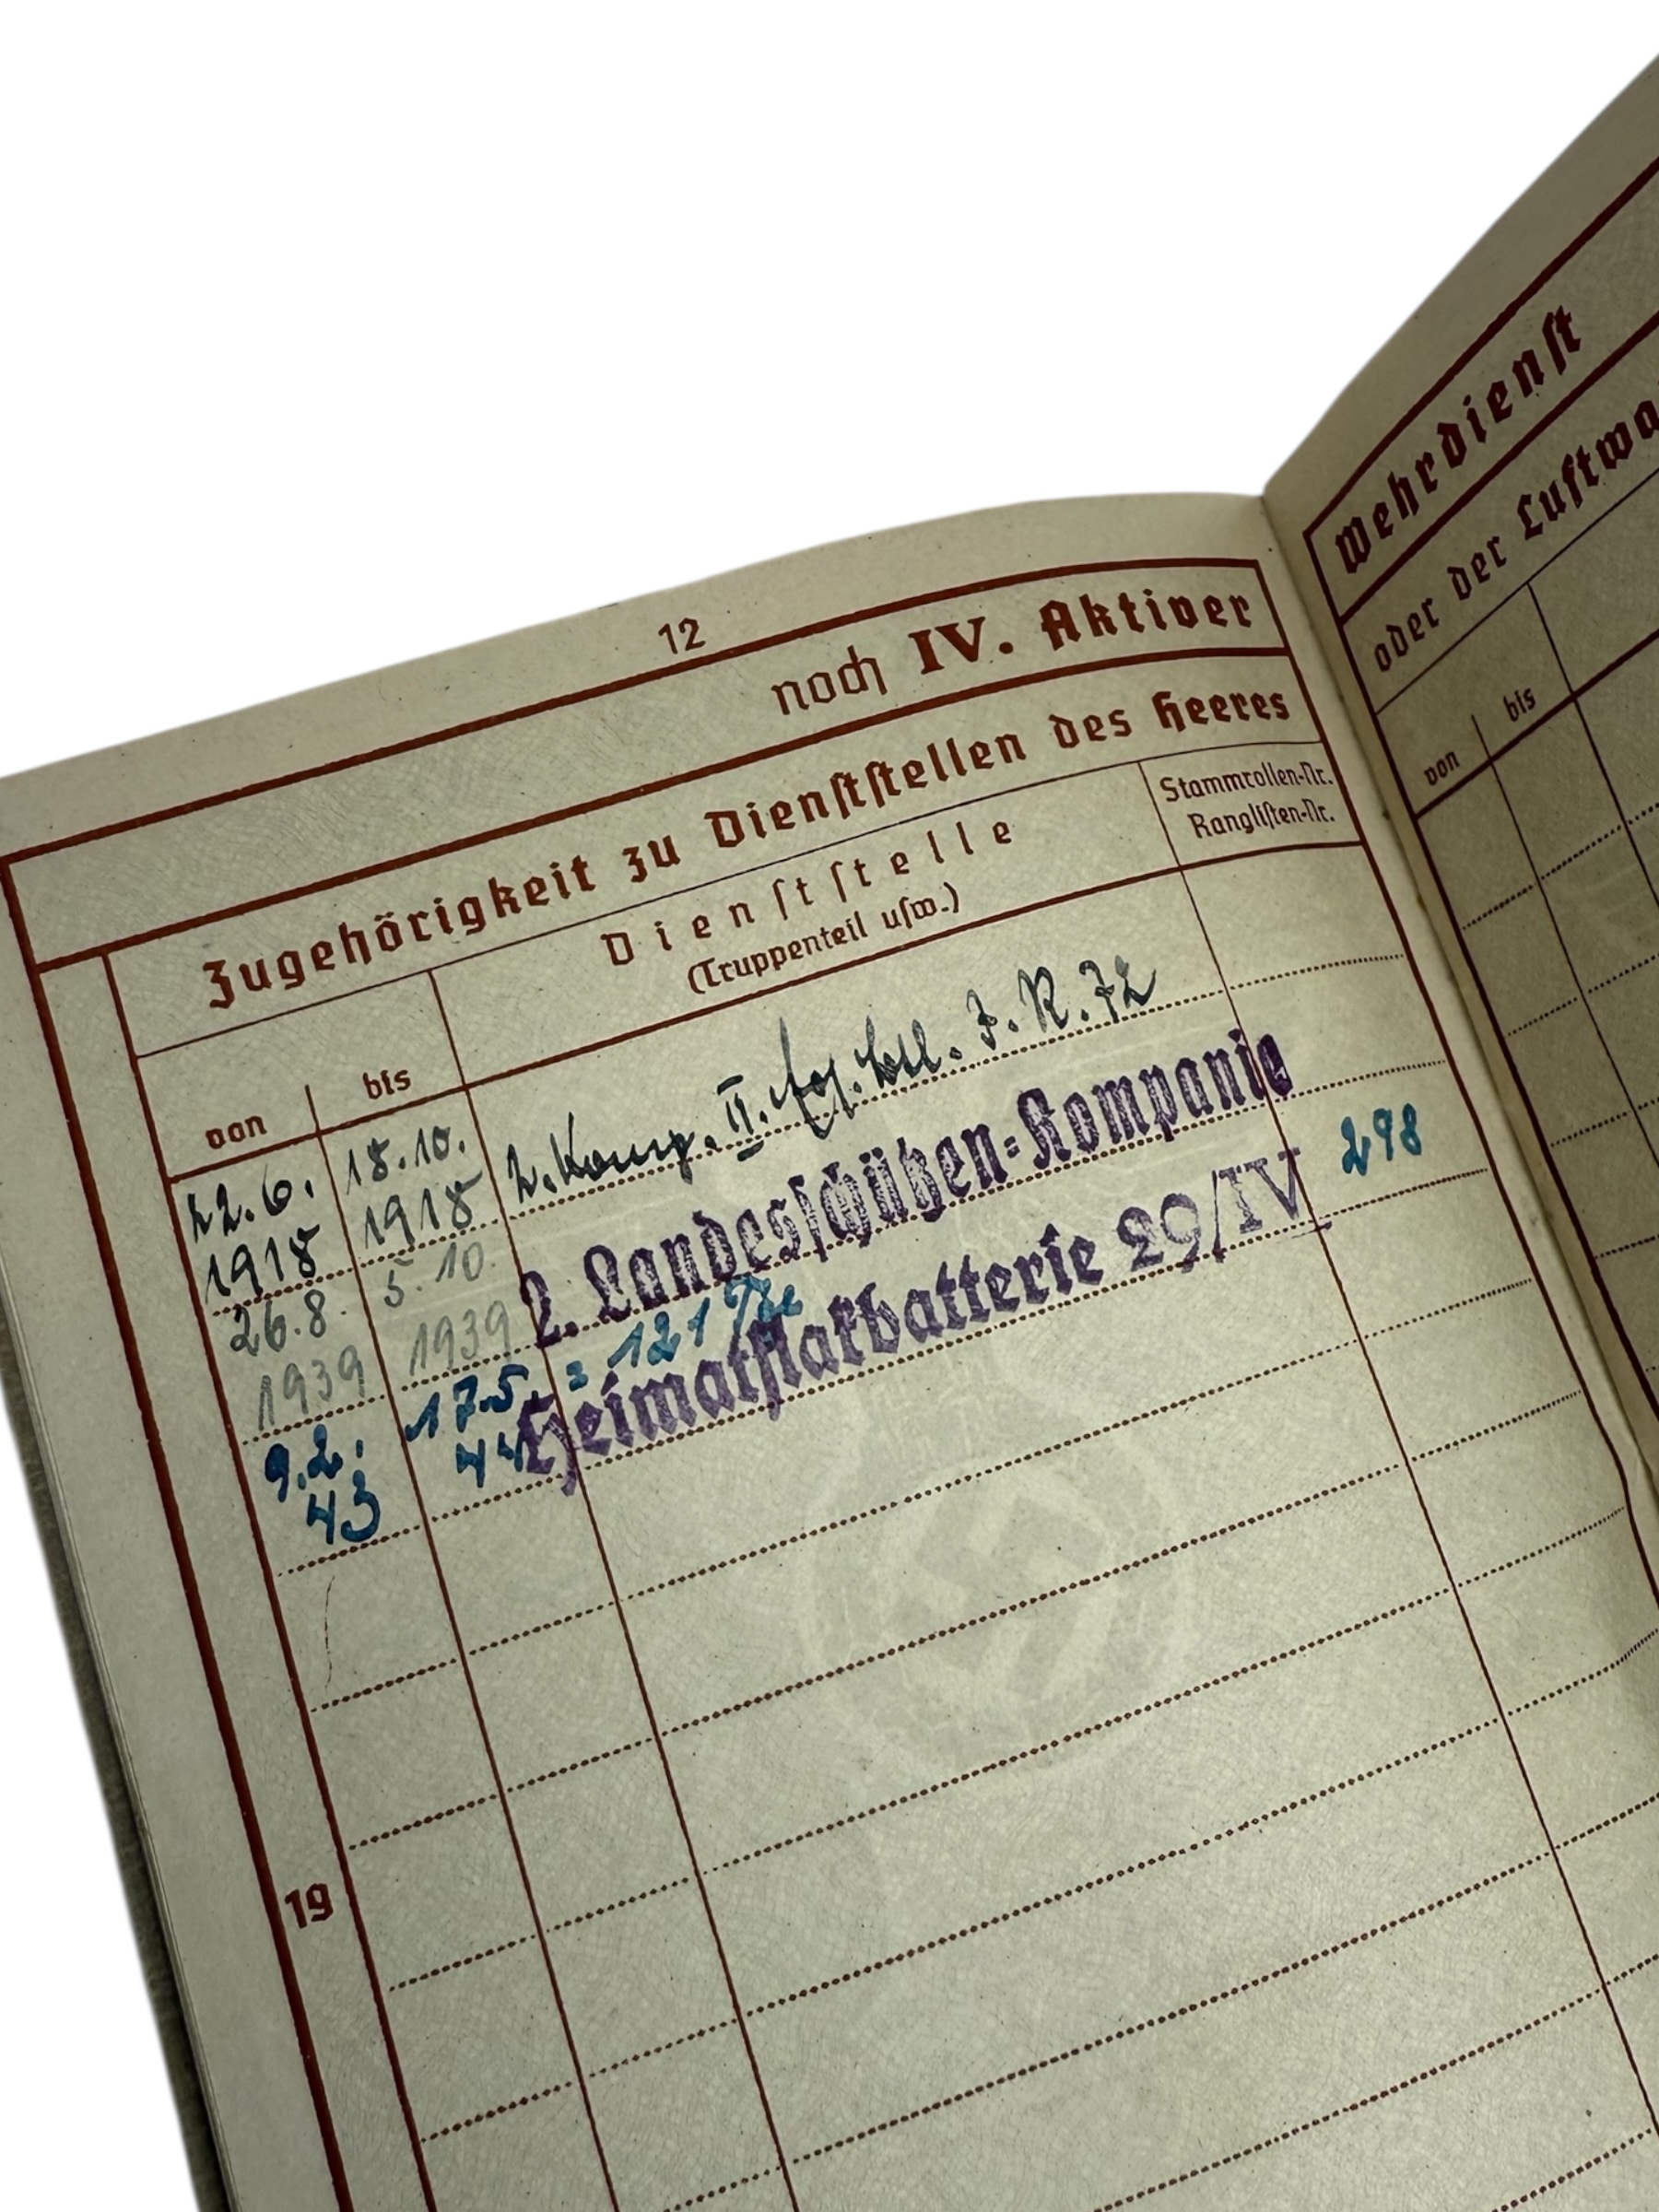 12
noch IV. Aktiver
Zugehörigkeit zu Dienststellen des Heeres
von
bis
Dienststelle
(Truppenteil usw.)
Stammrollen-Nr.
Ranglisten-Nr.
22.6.
1918
18.10.
1918
2. Komp. II. J. R. 72
26.8.
1939
5.10.
1939
2. Landesschützen-Kompanie
= 121 Tge
9.2.
43
17.5.
44
Heimatflakbatterie 29/IV
298
19
Wehrdienst
oder der Luftwa
von
bis